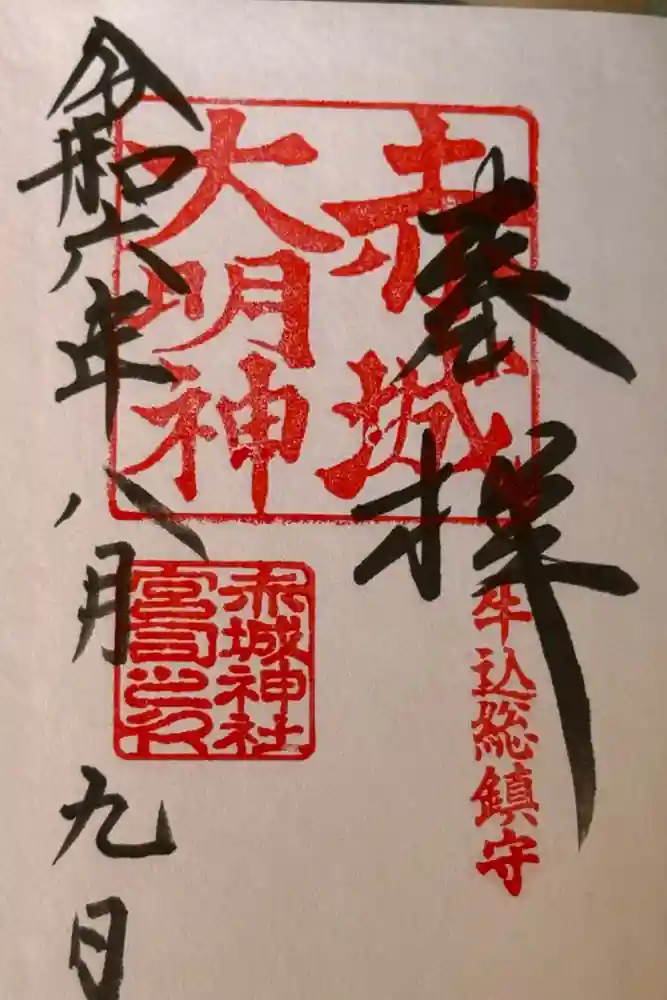 奉拝
牛込総鎮守
赤城
大明神
赤城神社
宮司之印
令和六年八月九日